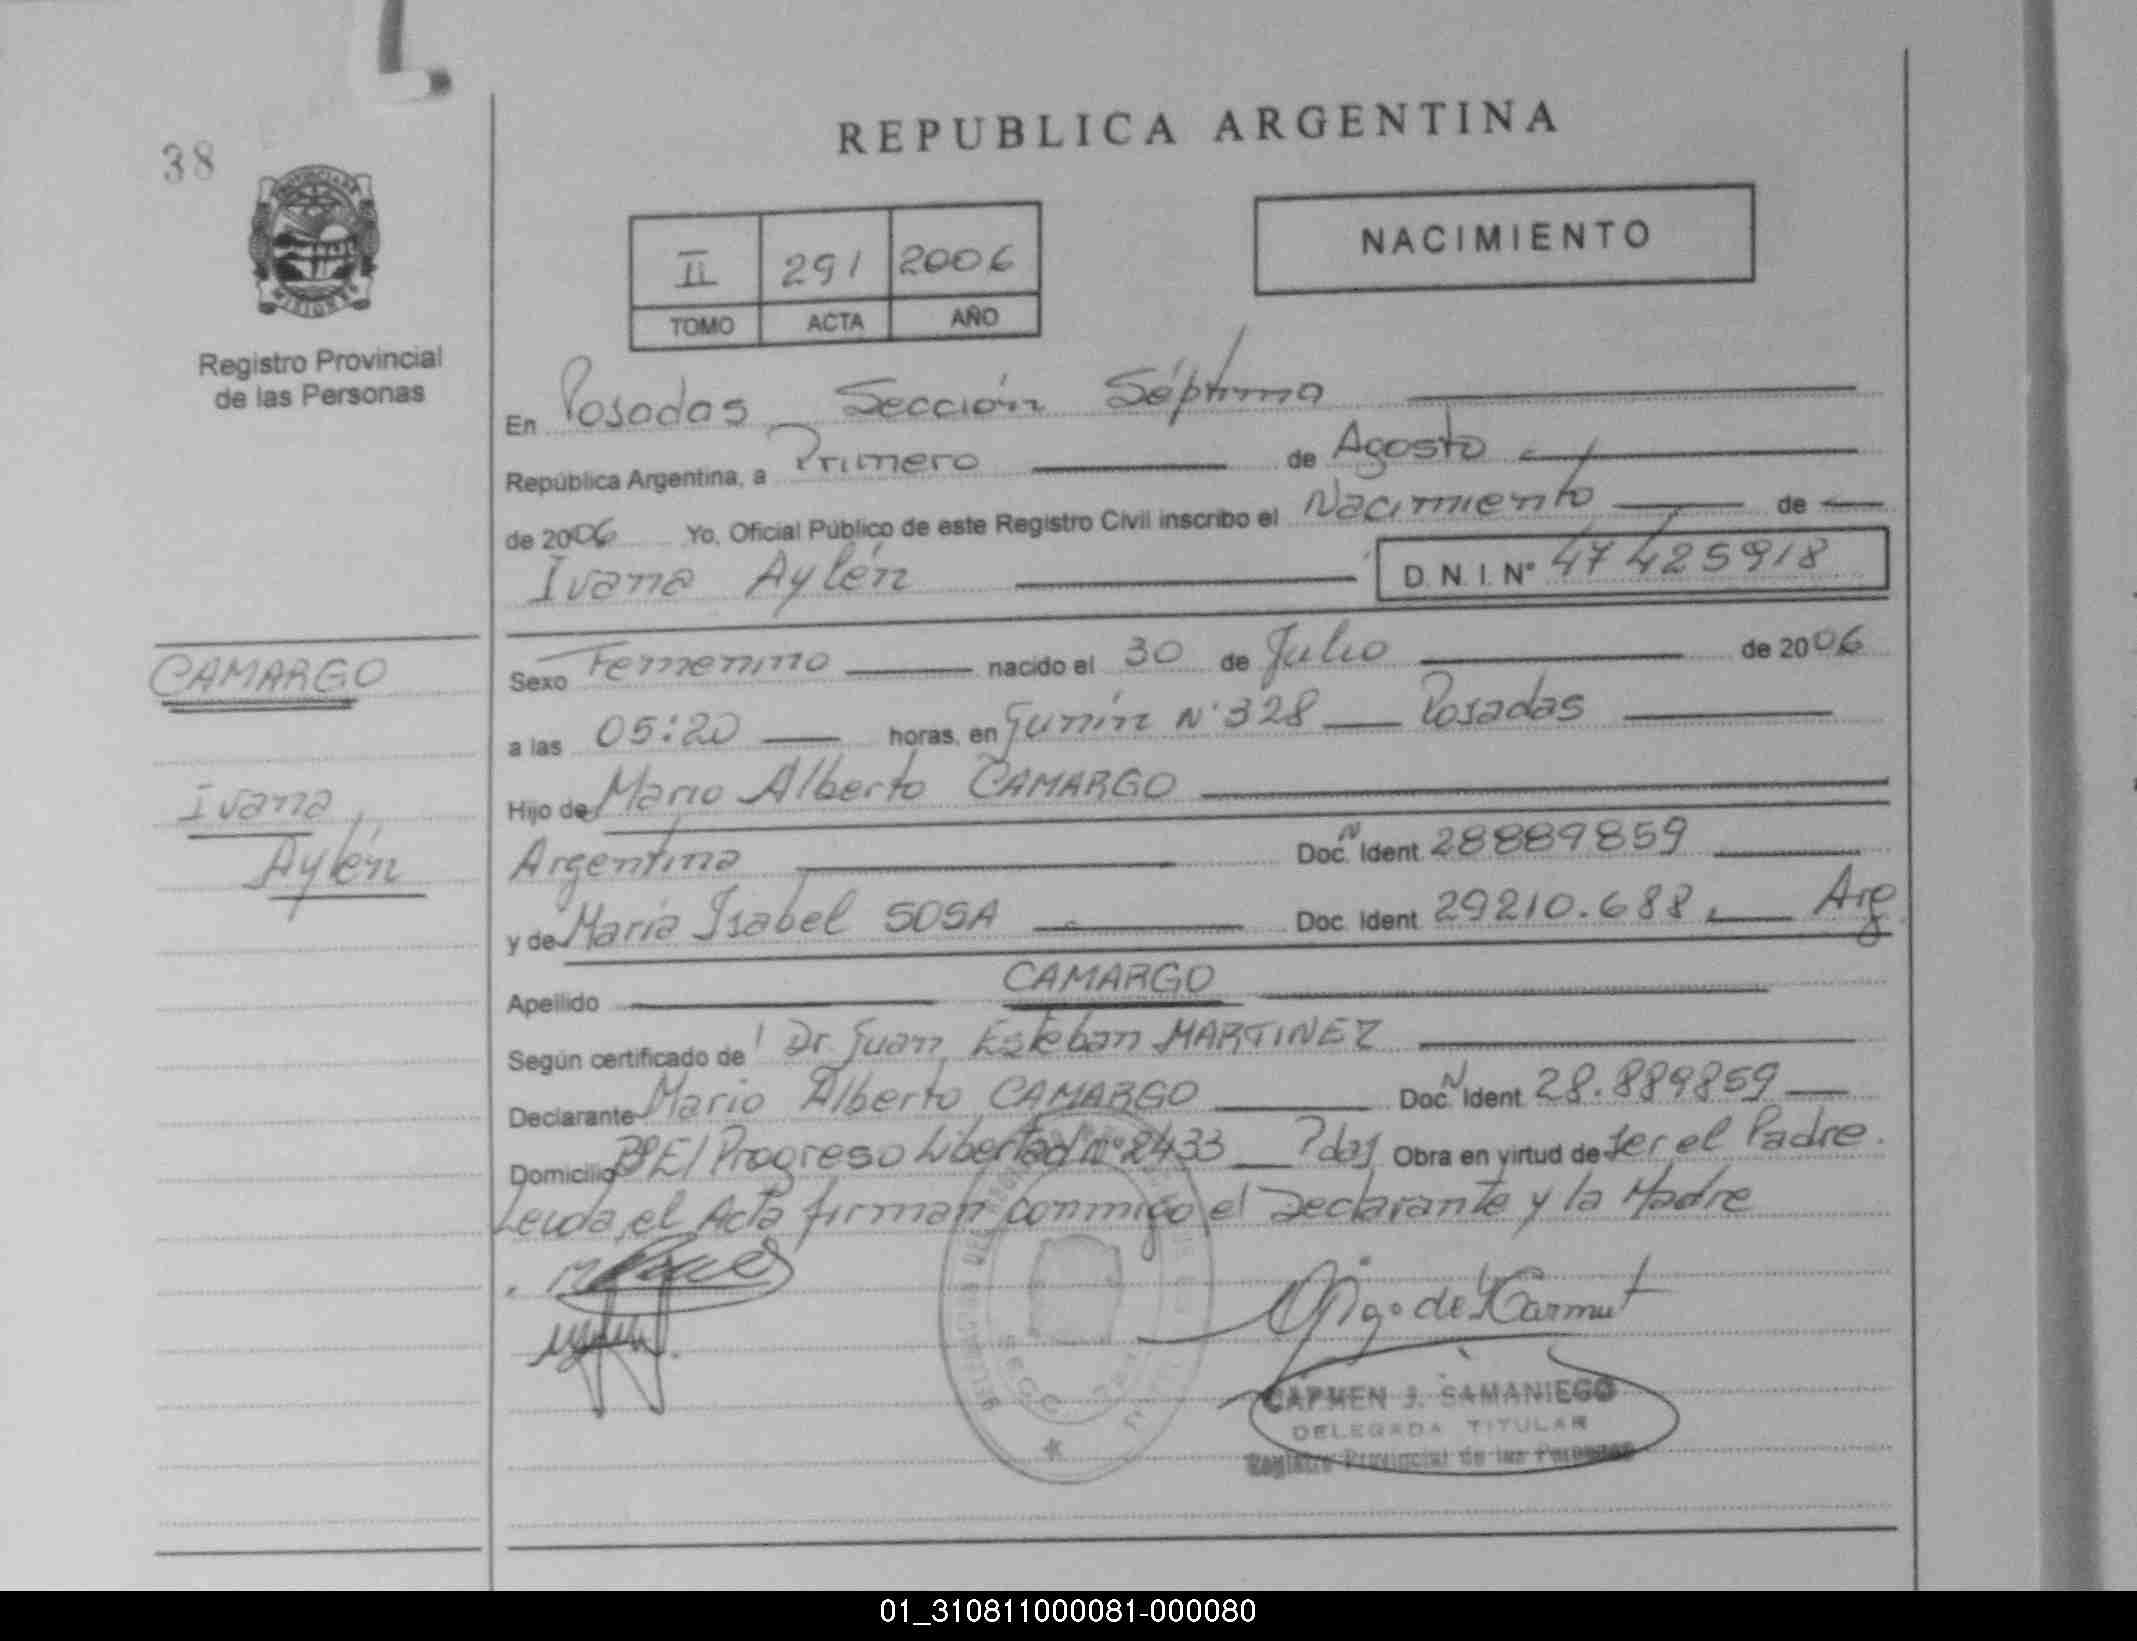 REPUBLICA ARGENTINA
38
II 291 2006
TOMO ACTA AÑO
NACIMIENTO
Registro Provincial
de las Personas
En Posadas Sección Séptima
República Argentina, a Primero de Agosto
de 2006 Yo, Oficial Público de este Registro Civil inscribo el Nacimiento de
Ivana Aylén D.N.I. Nº 47425918
CAMARGO
Ivana
Aylén
Sexo Femenino nacido el 30 de Julio de 2006
a las 05:20 horas, en Junín Nº 328 Posadas
Hijo de Mario Alberto CAMARGO
Argentina Doc. N Ident 28889859
y de María Isabel SOSA Doc. Ident 29210.688 Arg
Apellido CAMARGO
Según certificado de Dr Juan Esteban MARTINEZ
Declarante Mario Alberto CAMARGO Doc. N Ident 28.889859
Domicilio Bº El Progreso Libertad nº 2433 Pdas Obra en virtud de ser el Padre.
Leida el Acta firman conmigo el Declarante y la Madre
CARMEN J. SAMANIEGO
DELEGADA TITULAR
Registro Provincial de las Personas
01_310811000081-000080